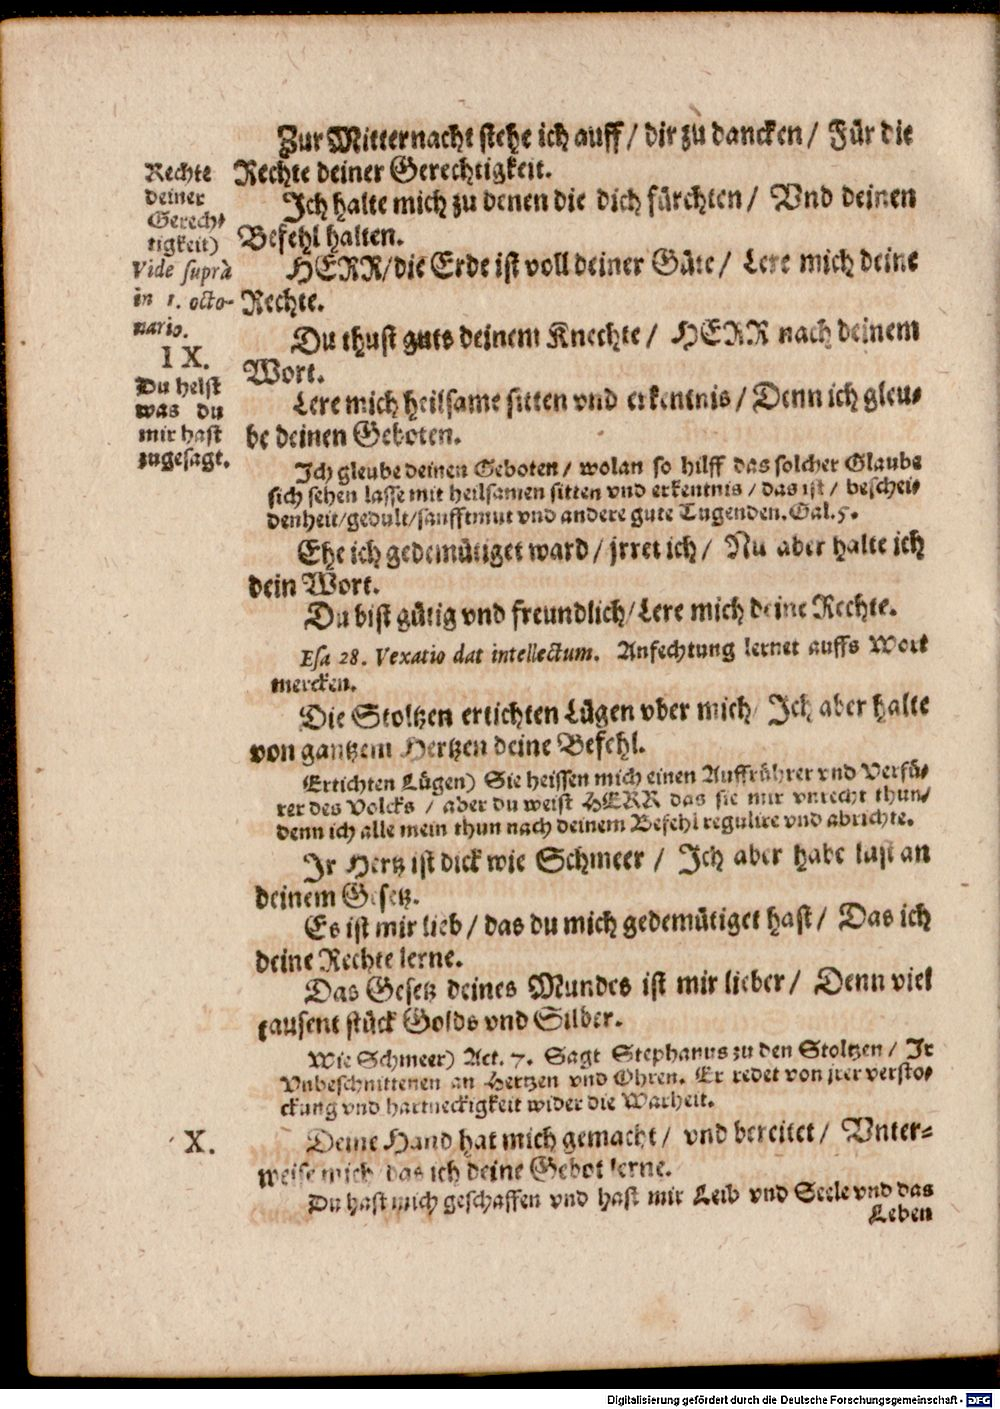 Zur Mitternacht stehe ich auff / dir zu dancken / Für die
Rechte deiner Gerechtigkeit.
Rechte
deiner
Gerech-
tigkeit)
Vide suprà
in 1. octo-
nario.
Ich halte mich zu denen die dich fürchten / Vnd deinen
Befehl halten.
HERR/die Erde ist voll deiner Güte / Lere mich deine
Rechte.
IX.
Du helst
was du
mir hast
zugesagt.
Du thust guts deinem Knechte / HERR nach deinem
Wort.
Lere mich heilsame sitten vnd erkentnis / Denn ich gleu-
be deinen Geboten.
Ich gleube deinen Geboten / wolan so hilff das solcher Glaube
sich sehen lasse mit heilsamen sitten vnd erkentnis / das ist / beschei-
denheit/gedult/saufftmut vnd andere gute Tugenden. Gal. 5.
Ehe ich gedemütiget ward / jrret ich / Nu aber halte ich
dein Wort.
Du bist gütig vnd freundlich/Lere mich deine Rechte.
Esa 28. Vexatio dat intellectum. Anfechtung lernet auffs Wort
mercken.
Die Stoltzen ertichten Lügen vber mich/ Ich aber halte
von gantzem Hertzen deine Befehl.
Ertichten Lügen) Sie heissen mich einen Auffrührer vnd Verfü-
rer des Volcks / aber du weist HERR das sie mir vnrecht thun/
denn ich alle mein thun nach deinem Befehl regulire vnd abrichte.
Ir Hertz ist dick wie Schmeer / Ich aber habe lust an
deinem Gesetz.
Es ist mir lieb / das du mich gedemütiget hast / Das ich
deine Rechte lerne.
Das Gesetz deines Mundes ist mir lieber / Denn viel
tausent stück Golds vnd Silber.
Wie Schmeer) Act. 7. Sagt Stephanus zu den Stoltzen / Ir
Vnbeschnittenen an Hertzen vnd Ohren. Er redet von jrer versto-
ckung vnd hartneckigkeit wider die Warheit.
X.
Deine Hand hat mich gemacht / vnd bereitet / Vnter-
weise mich/ das ich deine Gebot lerne.
Du hast mich geschaffen vnd hast mir Leib vnd Seele vnd das
Leben
Digitalisierung gefördert durch die Deutsche Forschungsgemeinschaft - DFG